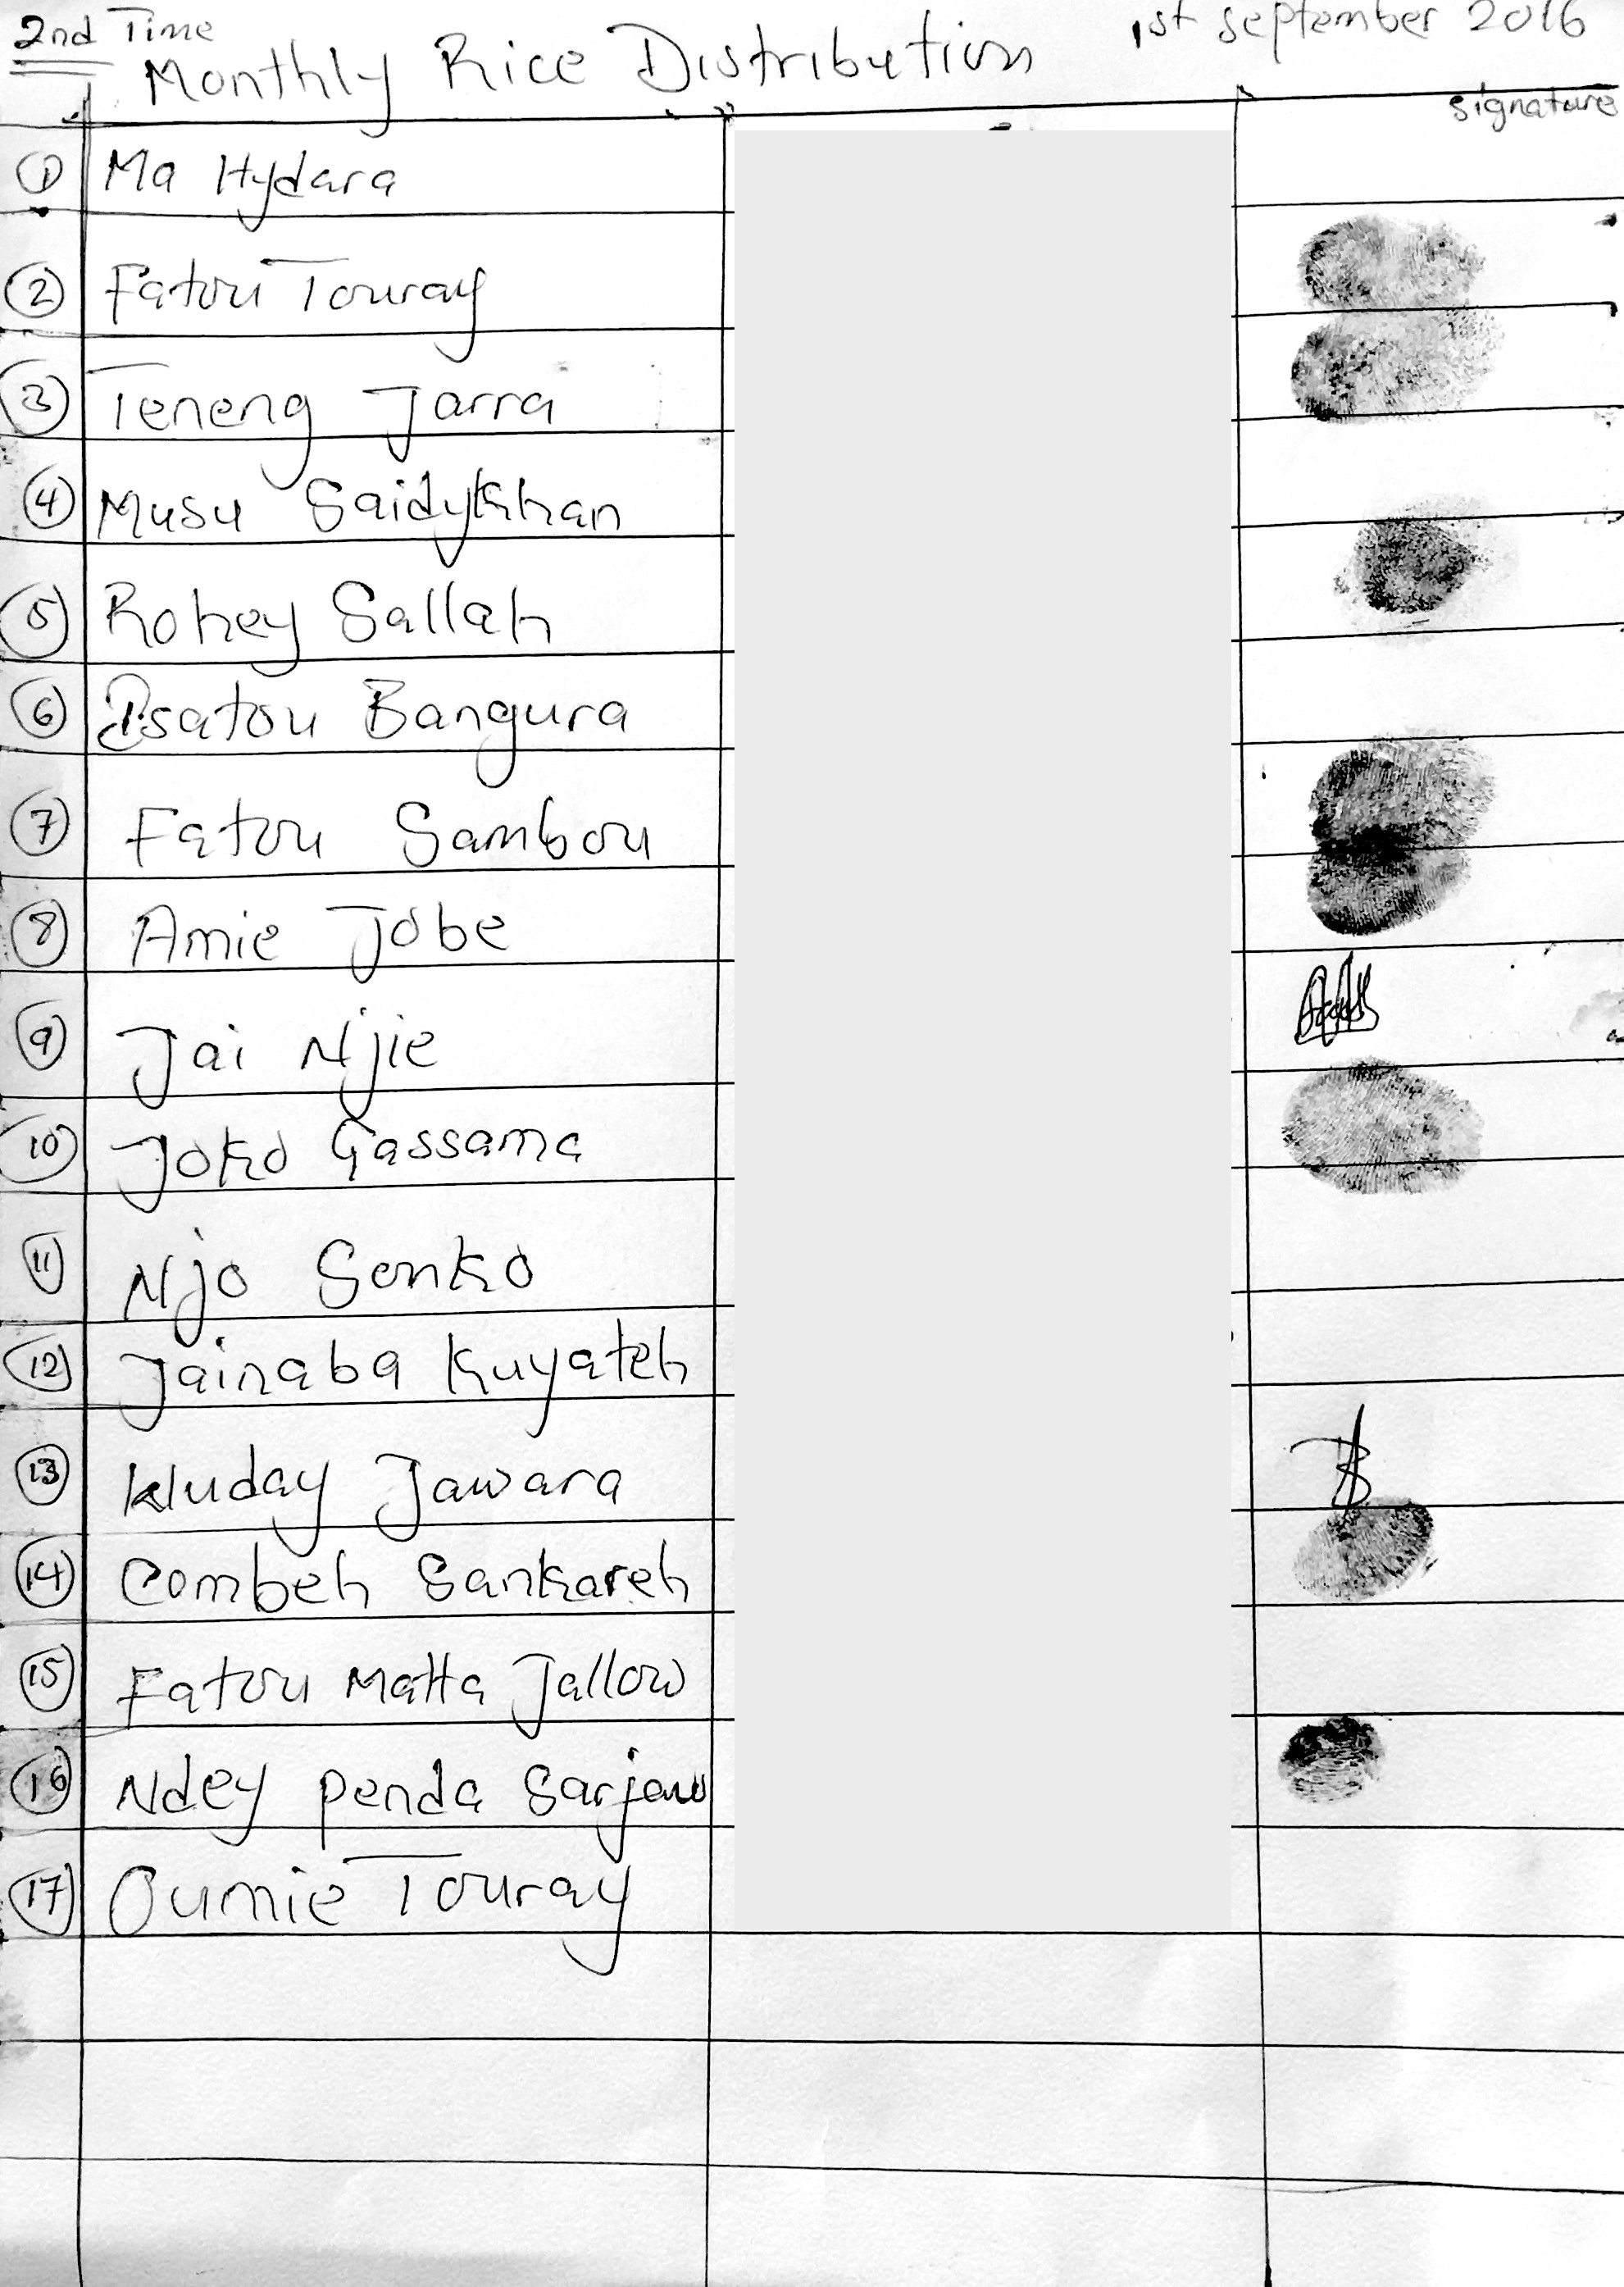 2nd Time
Monthly Rice Distribution
1st September 2016
signature
1 Ma Hydara
2 Fatou Touray
3 Teneng Jarra
4 Musu Saidykhan
5 Rohey Sallah
6 Isatou Bangura
7 Fatou Sambou
8 Amie Jobe
9 Jai Njie
10 Joko Gassama
11 Njo Sonko
12 Jainaba Kuyateh
13 Jawara
14 Combeh Sankareh
15 Fatou Matta Jallow
16 Ndey Penda
17 Oumie Touray